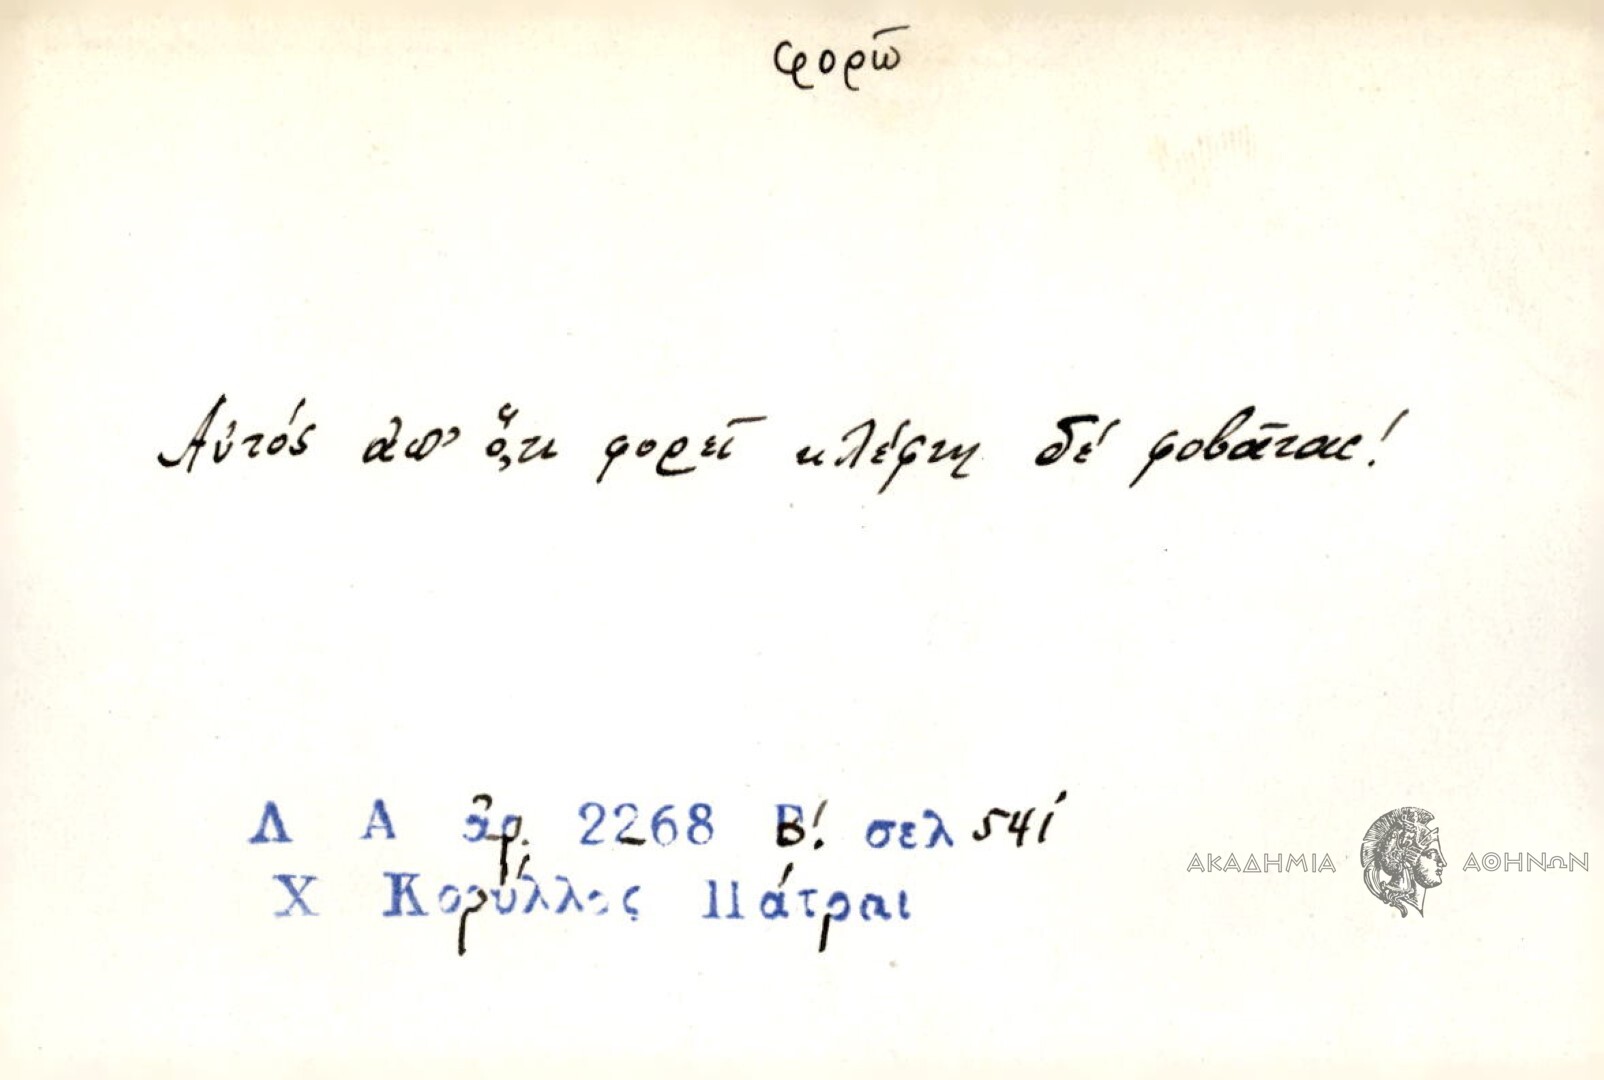 φορῶ
Αὐτός ἀπ' ὅ,τι φορεῖ κλέφτη δέ φοβᾶται!
Λ Α ἀρ. 2268 Β! σελ 541
Χ Κορύλλος Πάτραι
ΑΚΑΔΗΜΙΑ ΑΘΗΝΩΝ